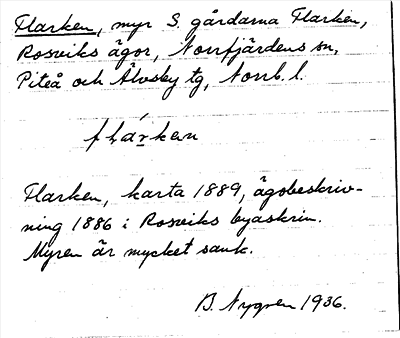 Flarken, myr S. gårdarna Flarken,
Rosviks ägor, Norrfjärdens sn,
Piteå och Älvsby tg, Norrb. l.
flárken
Flarken, karta 1889, ägobeskriv-
ning 1886 i Rosviks byaskrin.
Myren är mycket sank.
B. Nygren 1936.